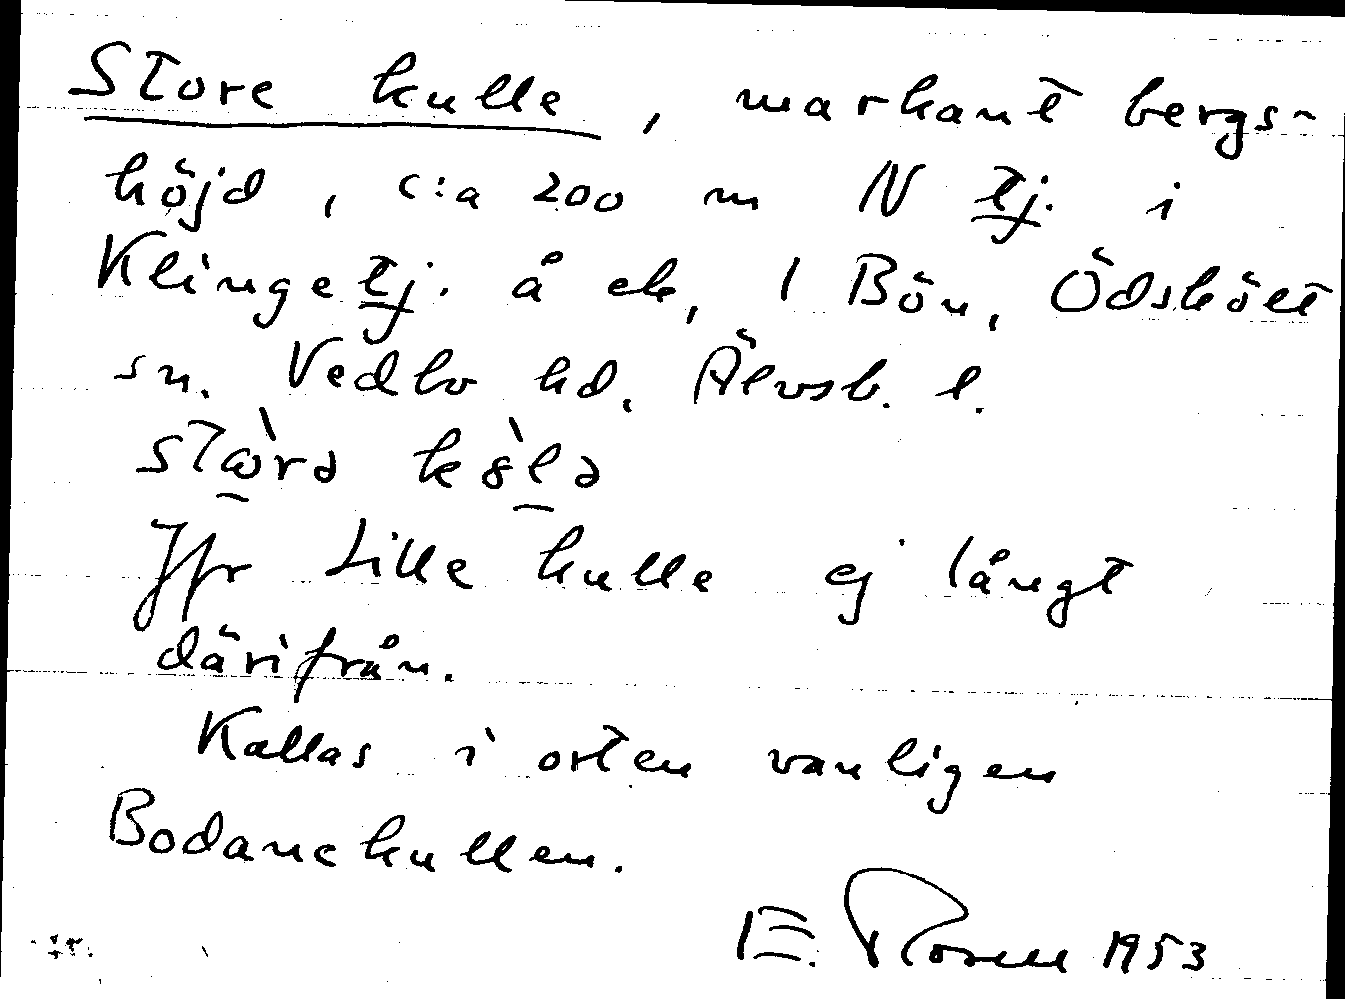 Store kulle, markant bergs-
höjd, c:a 200 m N tj. i
Klingetj. å ek, 1 Bön, Ödskölt
sn. Vedbo hd. Älvsb. l.
Jfr Lille kulle ej långt
därifrån.
Kallas i orten vanligen
Bodanekullen.
E. Rosell 1953